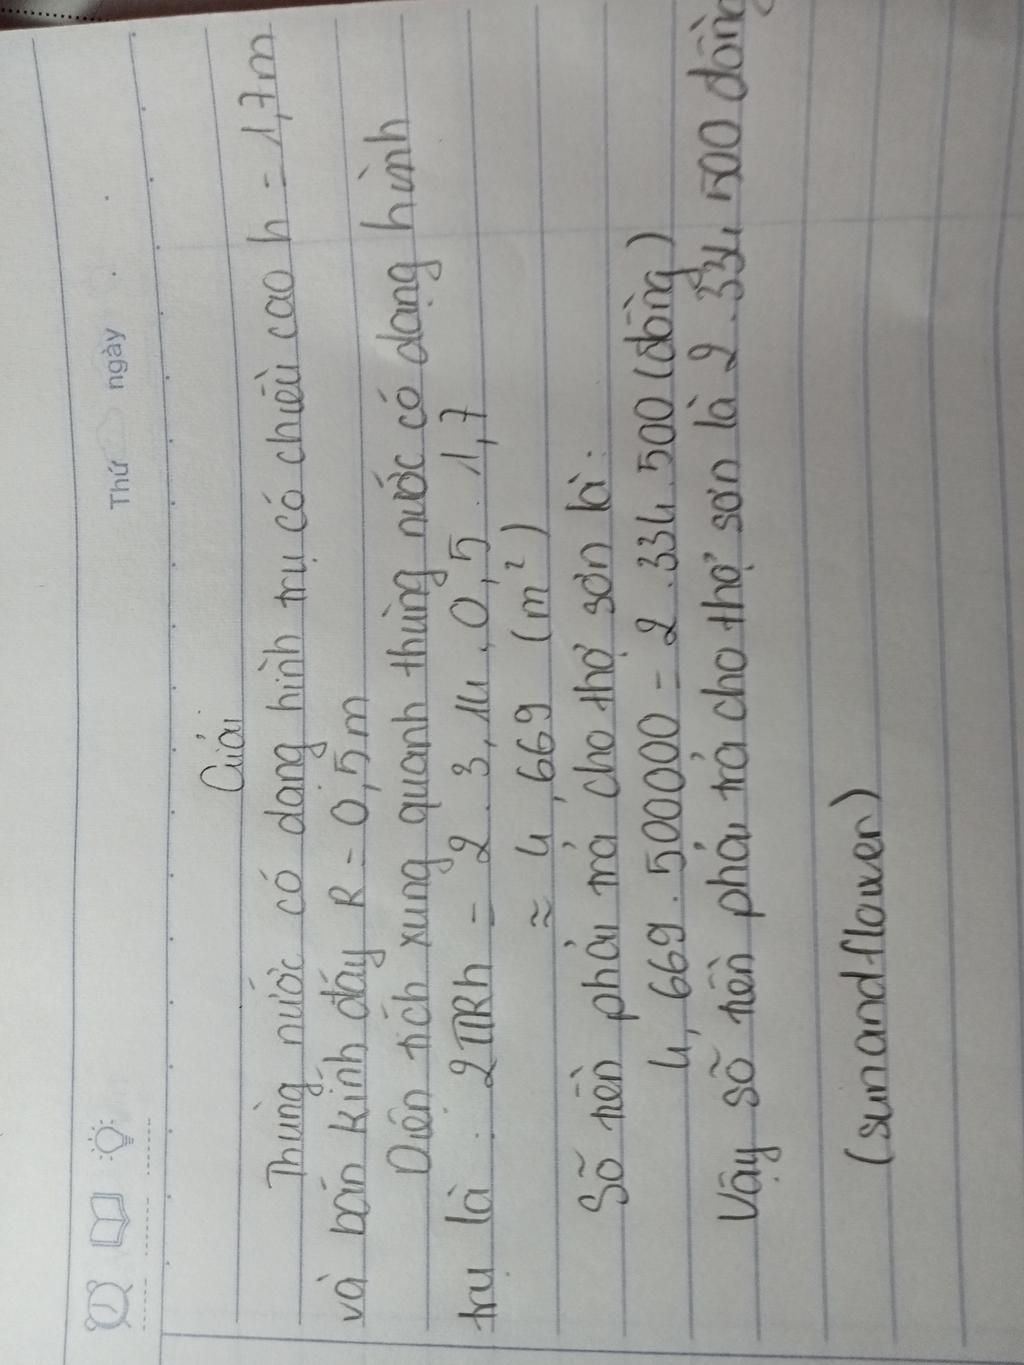 Thứ ngày
Giải
Thùng nước có dạng hình trụ có chiều cao h = 1,7m
và bán kính đáy R = 0,5m
Diện tích xung quanh thùng nước có dạng hình
trụ là : 2πRh = 2 . 3,14 . 0,5 . 1,7
≈ 4,669 (m²)
Số tiền phải trả cho thợ sơn là :
4,669 . 500000 = 2 .334 .500 (đồng)
Vậy số tiền phải trả cho thợ sơn là 2 .334 500 đồng
(sunandflower)